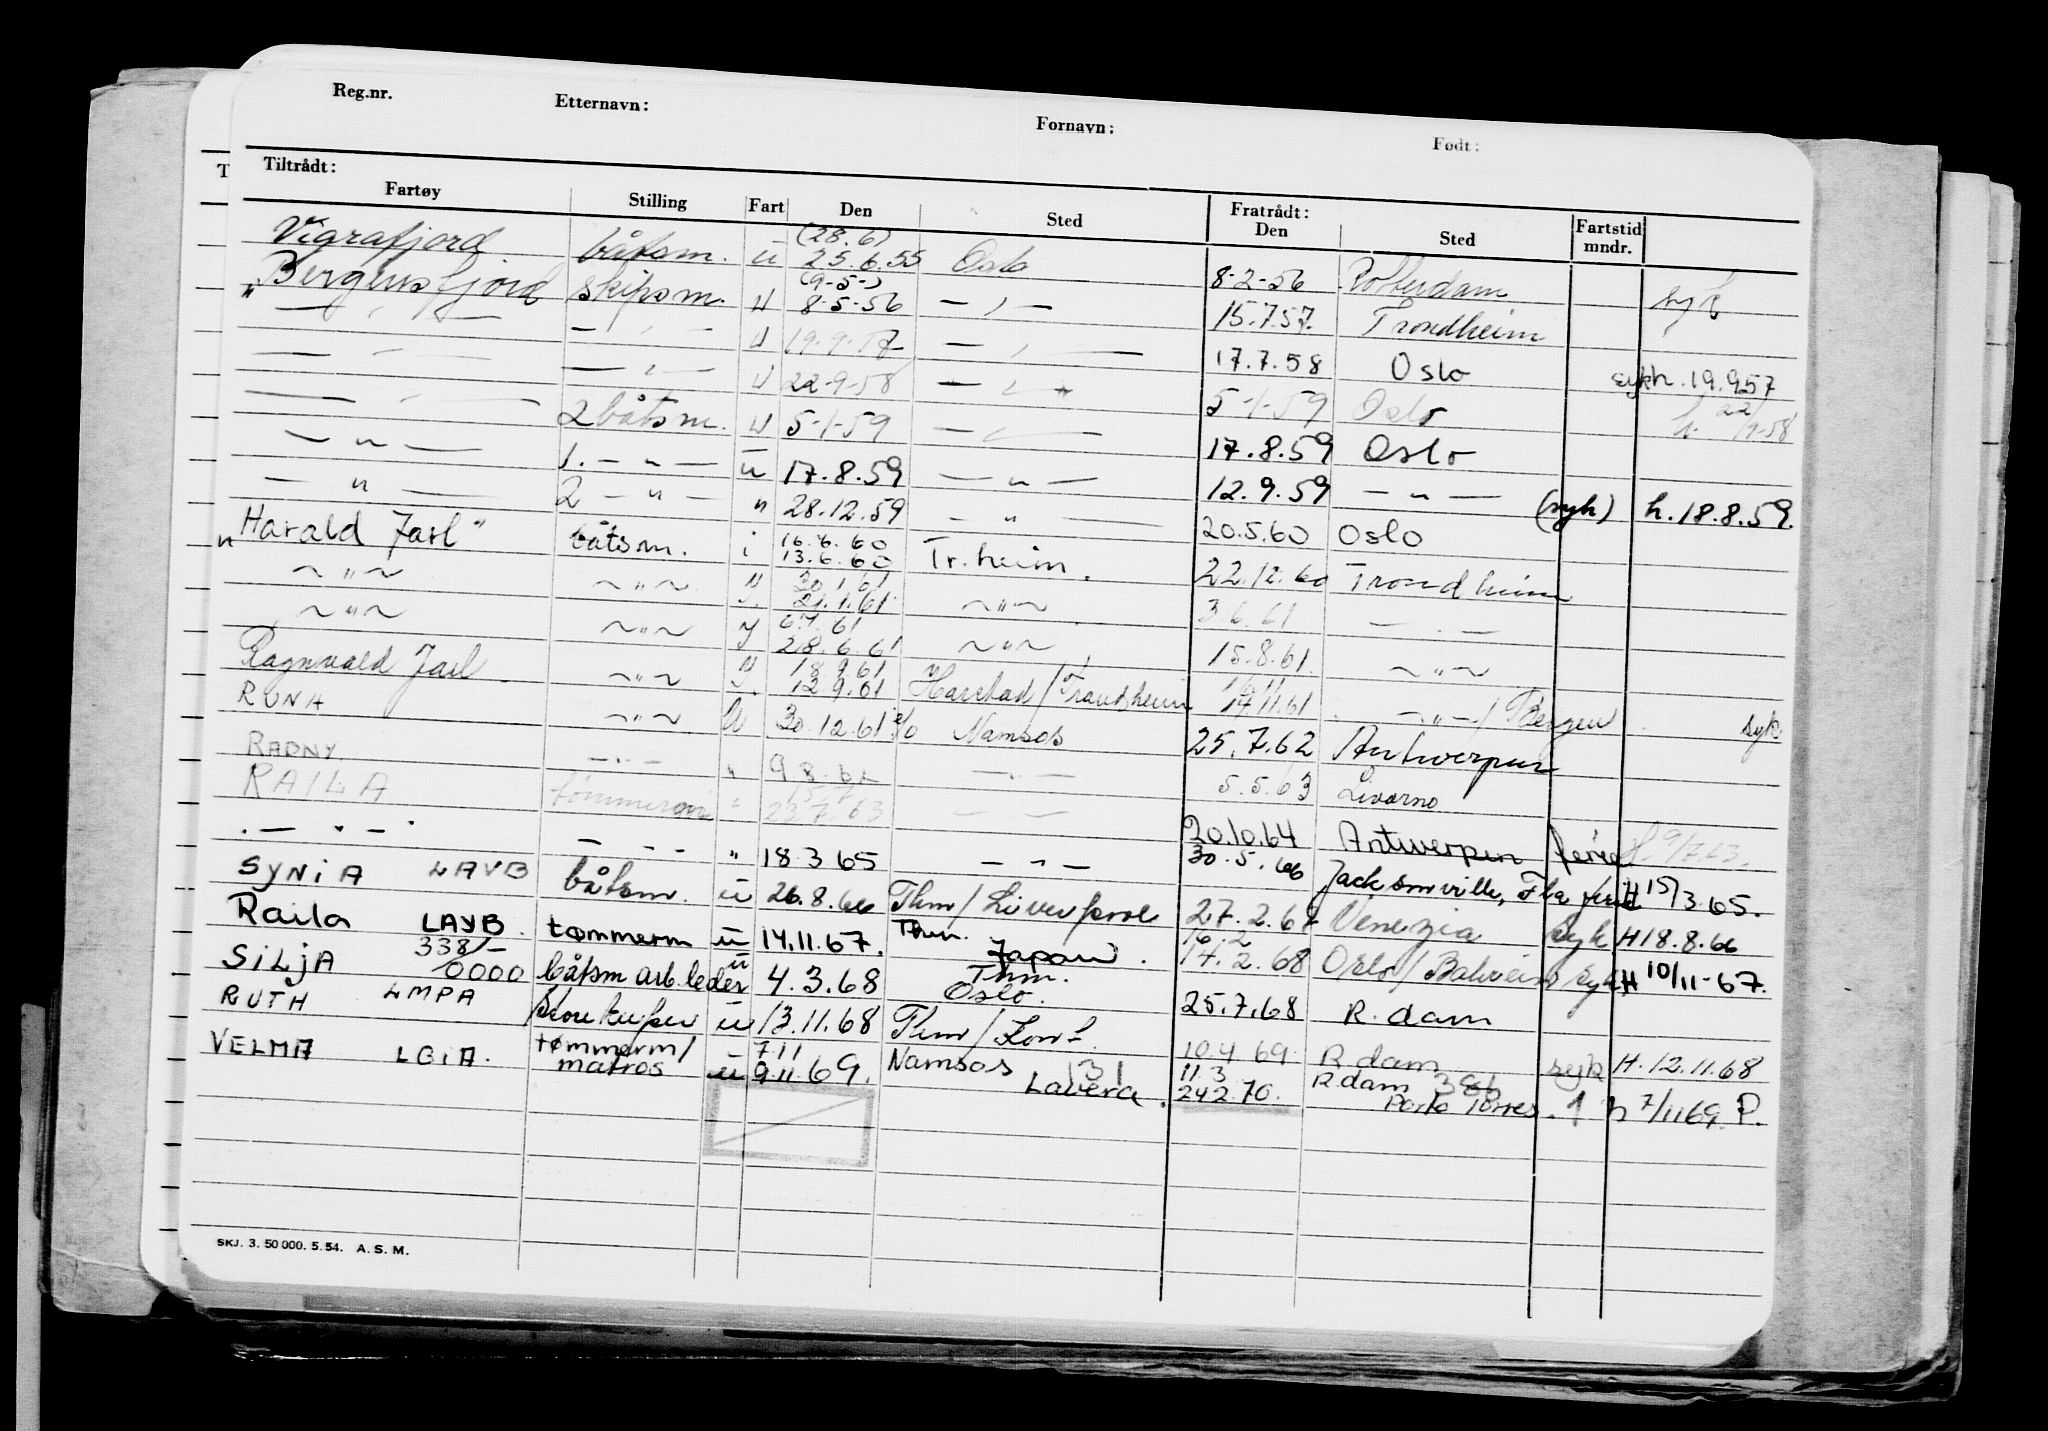 Reg.nr. Etternavn: Fornavn: Født:
Tiltrådt: Fratrådt:
Fartøy Stilling Fart Den Sted Den Sted Fartstid mndr.
Vigrafjord båtsm. u (28.6) 25.6.55 Oslo 8-2-56 Rotterdam syk
"Bergensfjord skipsm. u (9-5-) 8-5-56 — " — 15.7.57. Trondheim
— " — — " — u 19.9.57 — " — 17.7.58 Oslo sykh. 19.957
— " — — " — u 22-9-58 — " — 5-1-59 Oslo h. 22/9-58
— " — 2 båtsm. u 5-1-59 — " — 17.8.59 Oslo
— " — 1. — " — u 17.8.59 — " — 12.9.59 — " — (syk) h. 18.8.59.
— " — 2 — " — " 28.12.59 — " — 20.5.60 Oslo
"Harald Jarl" båtsm. i 16.6.60 13.6.60 Tr.heim. 22.12.60 Trondheim
~ " ~ ~ " ~ 30.1.61 21.1.61 ~ " ~ 3.6.61 — " —
~ " ~ ~ " ~ 6.7.61 28.6.61 ~ " ~ 15.8.61. ~ " ~
Ragnvald Jarl ~ " ~ 18.9.61 12.9.61 Harstad/Trondheim 17.11.61 — " — / Bergen syk
RUNA ~ " ~ u 30.12.61 Namsos 25.7.62 Antwerpen
RADNY — " — " — " — 5.5.63 Livorno
RAILA tømmerm " 22.7.63 — — 20.10.64 Antwerpen ferie
— " — — " — " 18.3.65 — " — 30.5.66 Jacksonville, Fla ferie H 15/3.65.
SYNIA LAVB båtsm. u 26.8.66 Thm/Liverpool 27.2.67 Venezia syk H 18.8.66
Raila LAYB. tømmerm u 14.11.67. Thm. Japan. 16.2 17.2.68 Oslo/Bahrein syk H 10/11-67.
SILJA 338/- 0000 båtsm arb.leder u 4.3.68 Thm. Oslo. 25.7.68 R.dam
RUTH LMPA u 13.11.68 10.4.69. R.dam syk H. 12.11.68
VELMA LGIA. tømmerm/ matros u 7.11 9.11.69. Namsos 131 Lavera. 11.3 24.2.70. R.dam 386 Porto Torres. 1 h 7/1169. P.
SKJ. 3. 50 000. 5. 54. A. S. M.